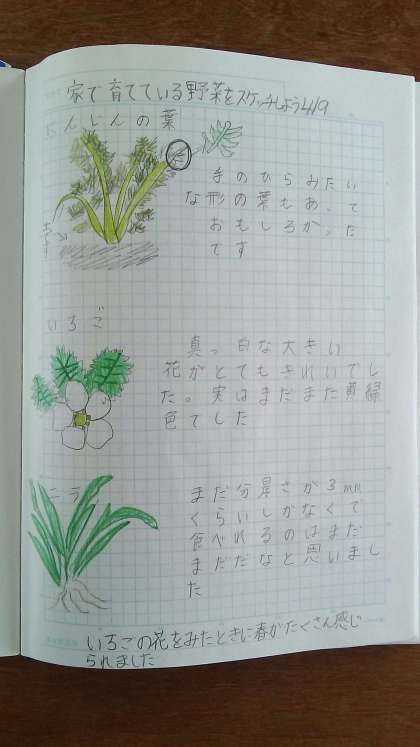 家で育てている野菜をスケッチしよう4/9
にんじんの葉
手のひらみたい
な形の葉もあって
おもしろかった
です
いちご
真っ白な大きい
花がとてもきれいでし
た。実はまだまだ黄緑
色でした
ニラ
まだ分厚さが3mm
くらいしかなくて
食べれるのはまだ
まだだなと思いまし
た
いちごの花をみたときに春がたくさん感じ
られました